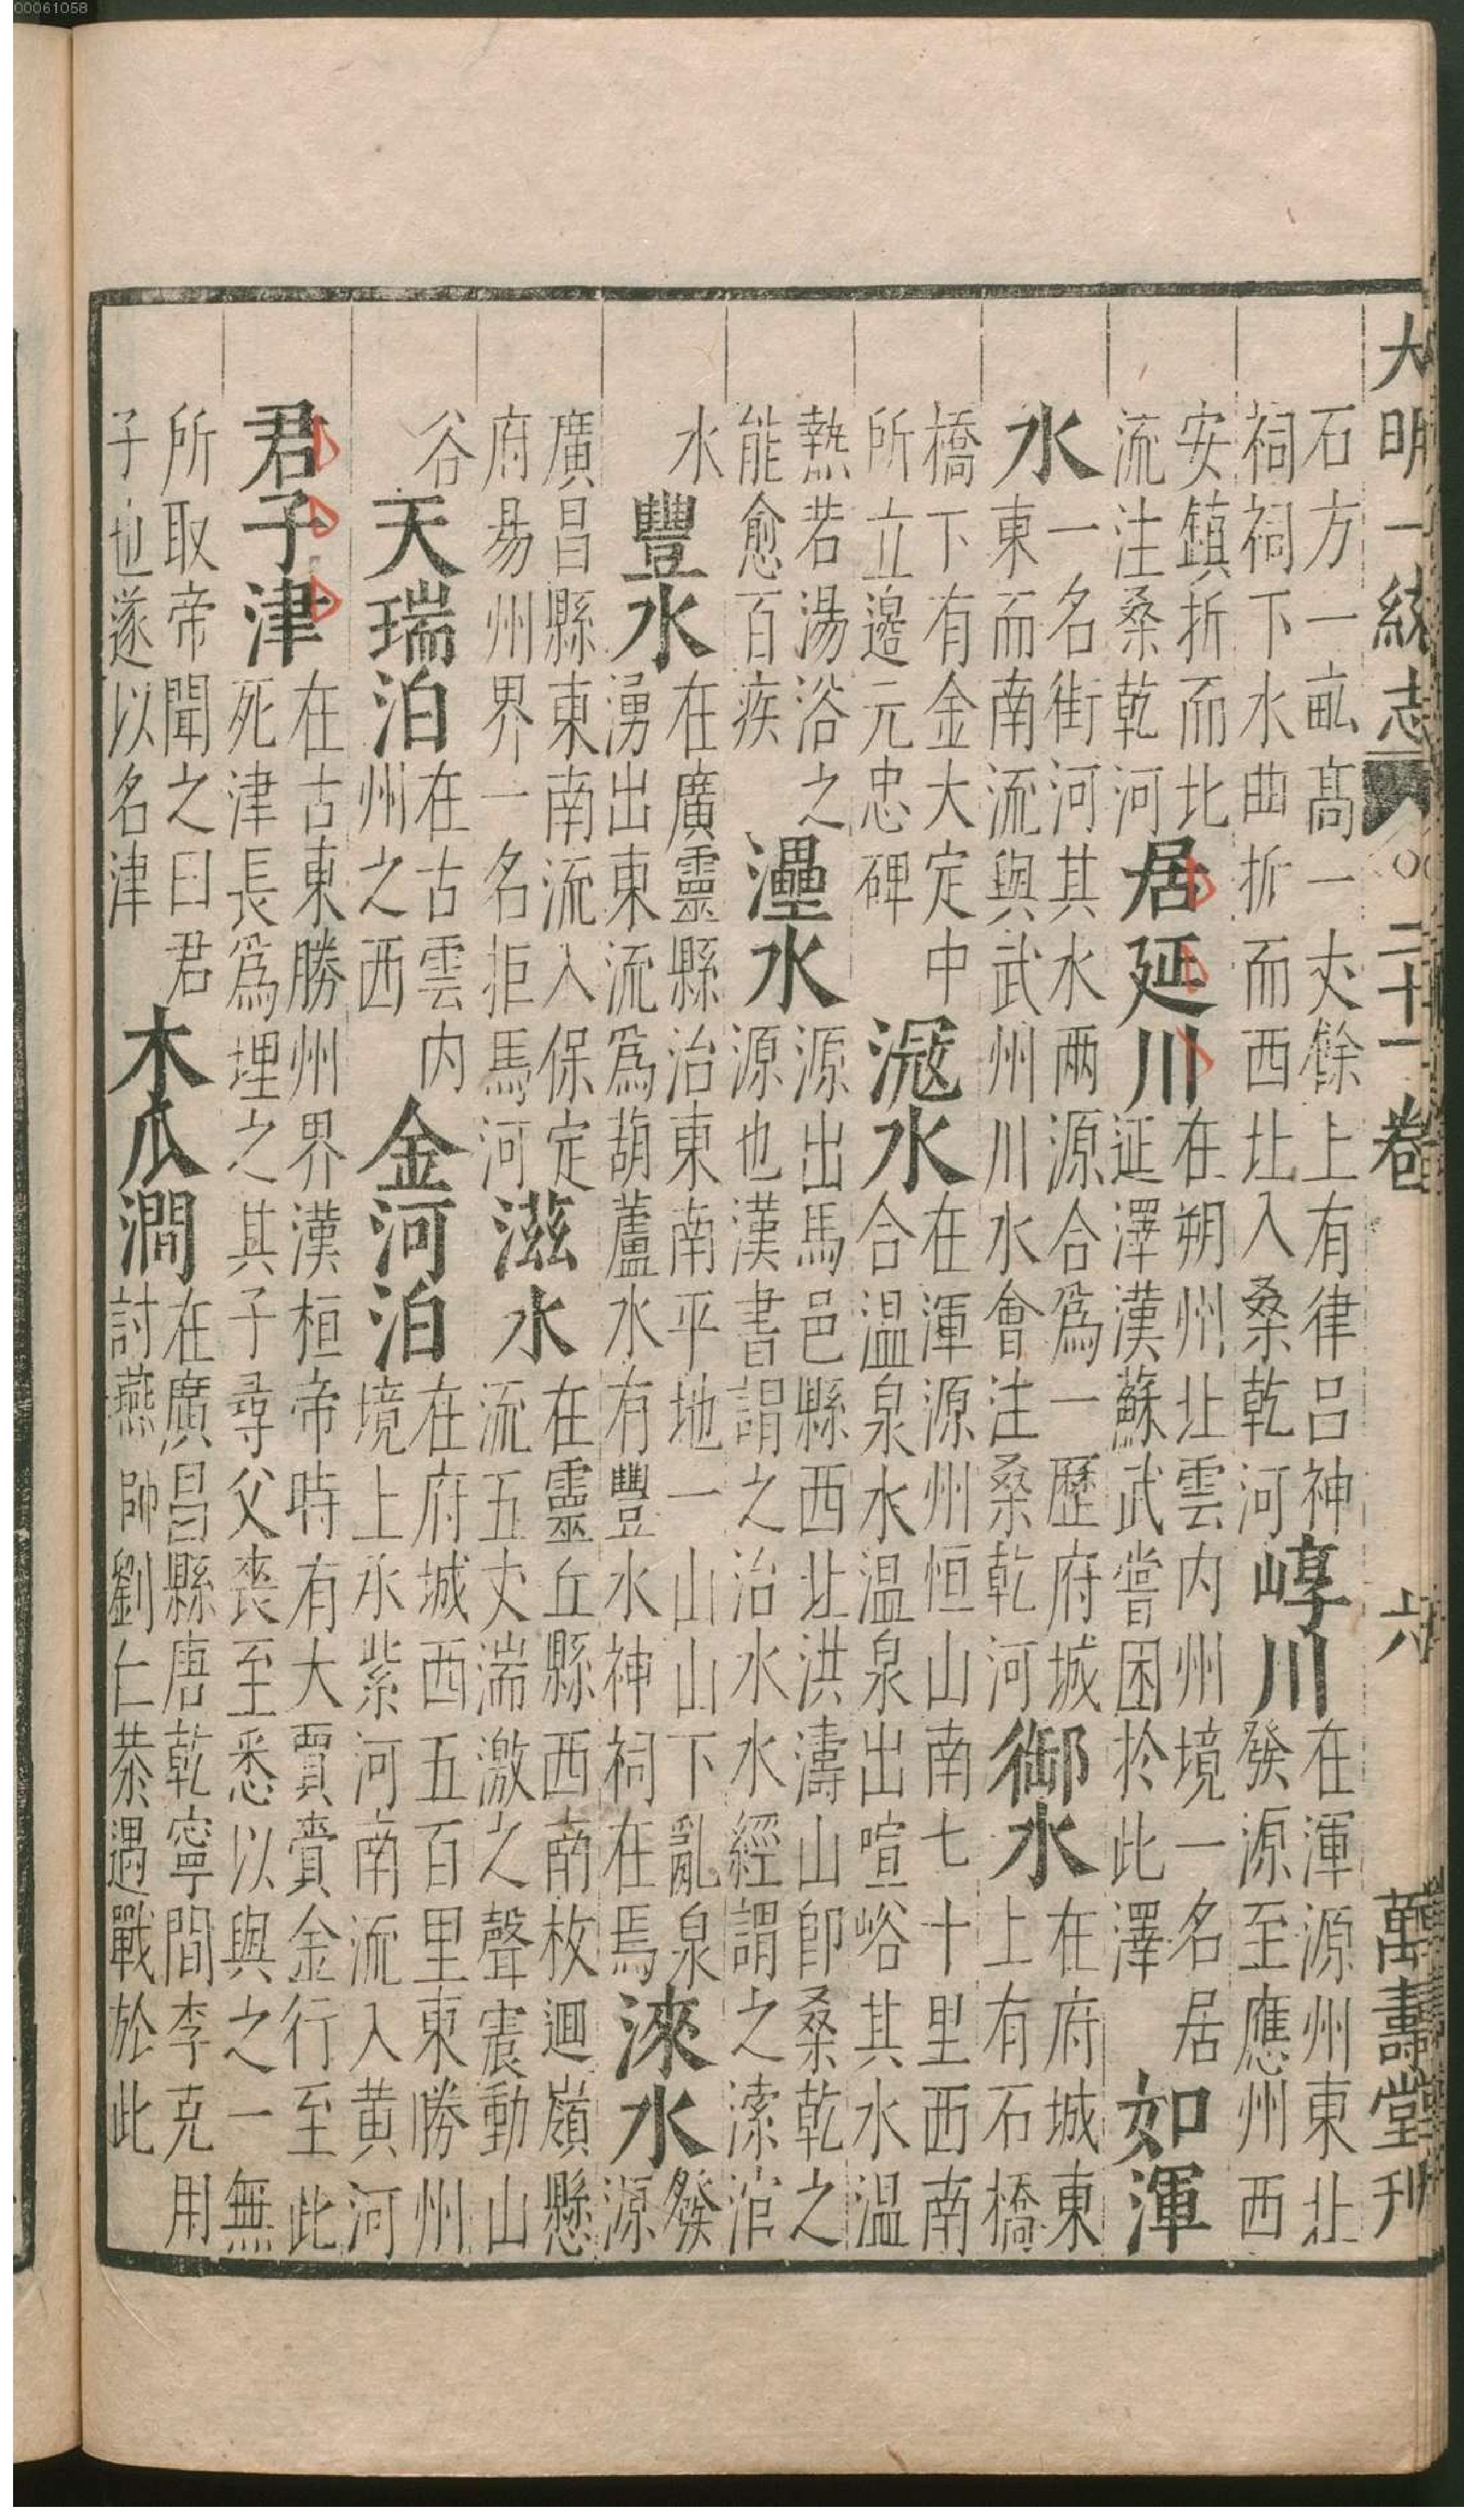 大明一統志 二十一卷 六 萬壽堂刊
石方一畆髙一丈餘上有律吕神
祠祠下水曲折而西北入桑乾河
崞川
在渾源州東北
發源至應州西
安鎮折而北
流注桑乾河
居延川
在朔州北雲内州境一名居
延澤漢蘇武嘗困於此澤
如渾
水
一名街河其水兩源合爲一歷府城
東而南流與武州川水會注桑乾河
御水
在府城東
上有石橋
橋下有金大定中
所立邉元忠碑
滱水
在渾源州恒山南七十里西南
合温泉水温泉出喧峪其水温
熱若湯浴之
能愈百疾
灅水
源出馬邑縣西北洪濤山即桑乾之
源也漢書謂之治水水經謂之溹涫
水
豐水
在廣靈縣治東南平地一山山下亂泉
湧出東流爲葫蘆水有豐水神祠在焉
淶水
發
源
廣昌縣東南流入保定
府昜州界一名拒馬河
滋水
在靈丘縣西南枚迴嶺懸
流五丈湍激之聲震動山
谷
天瑞泊
在古雲内
州之西
金河泊
在府城西五百里東勝州
境上承紫河南流入黄河
君子津
在古東勝州界漢桓帝時有大賈賫金行至此
死津長爲埋之其子尋父喪至悉以與之一無
所取帝聞之曰君
子也遂以名津
木瓜澗
在廣昌縣唐乾寧間李克用
討燕帥劉仁恭遇戰於此
00061058